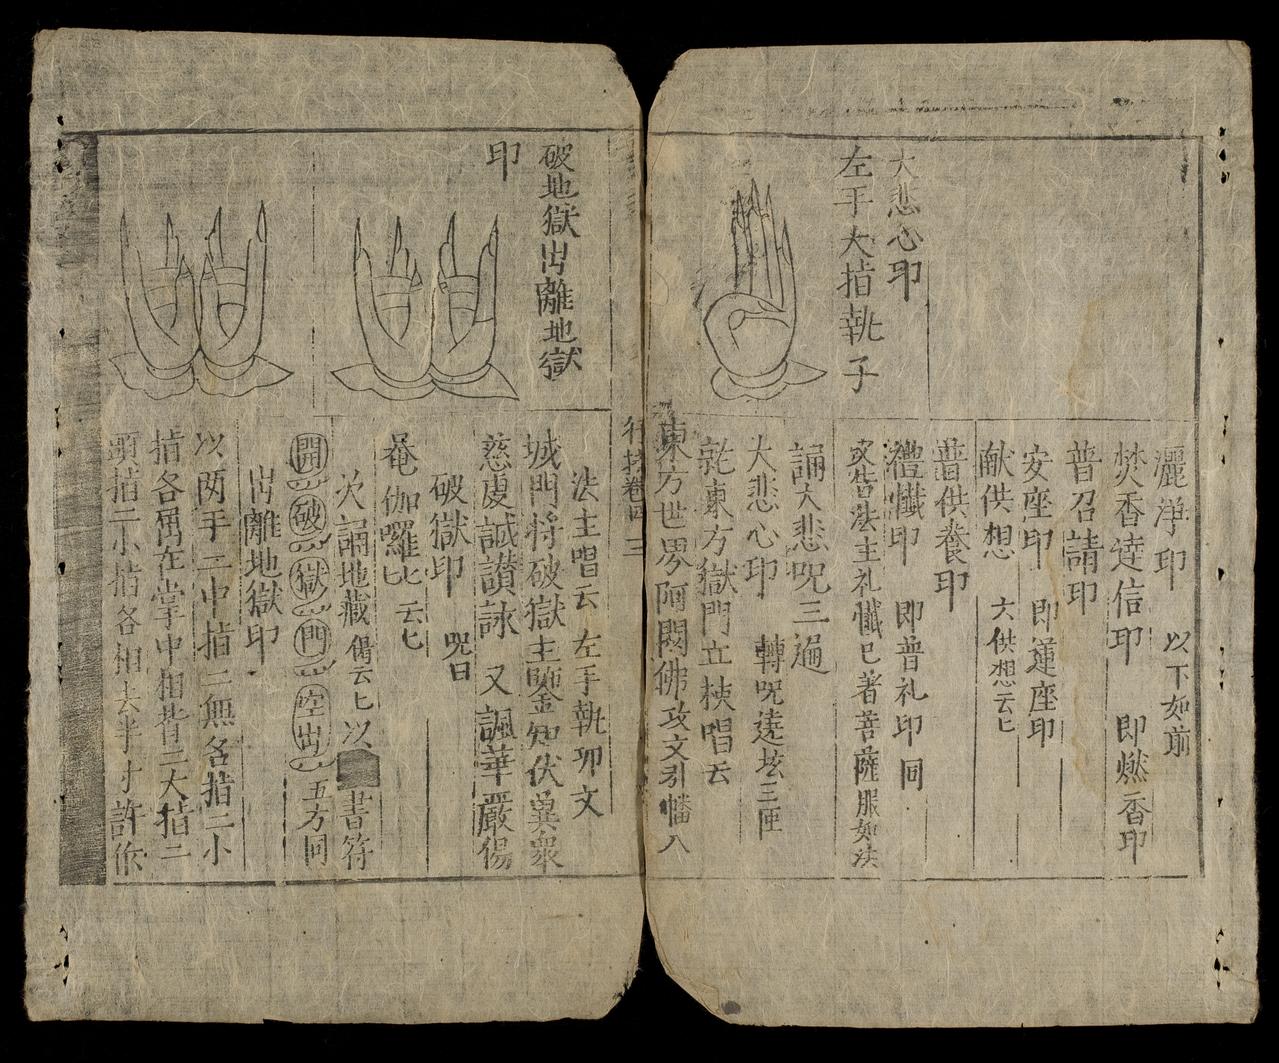 大悲心印
左手大指執子
灑淨印 以下如前
焚香達信印 即燃香印
普召請印
安座印 即蓮座印
献供想 六供想云匕
普供養印
禮懺印 即普礼印同
法主礼懺已著菩薩服如法
誦大悲呪三遍
大悲心印 轉呪遶坛三匝
東方獄門立
唱云
東方世界阿閦佛 文引幡入
卷四 三
破地獄出離地獄
印
法主唱云 左手執 文
城門將破獄主 知伏兾衆
慈虔誠讃詠 又諷華嚴偈
破獄印 呪曰
唵伽囉匕 云匕
次誦地藏偈云匕 以 書符
開 破 獄 門 空出 五方同
出離地獄印
以两手二中指二無名指二小
指各屈在掌中相背二大指二
頭指二小指各相去半寸許